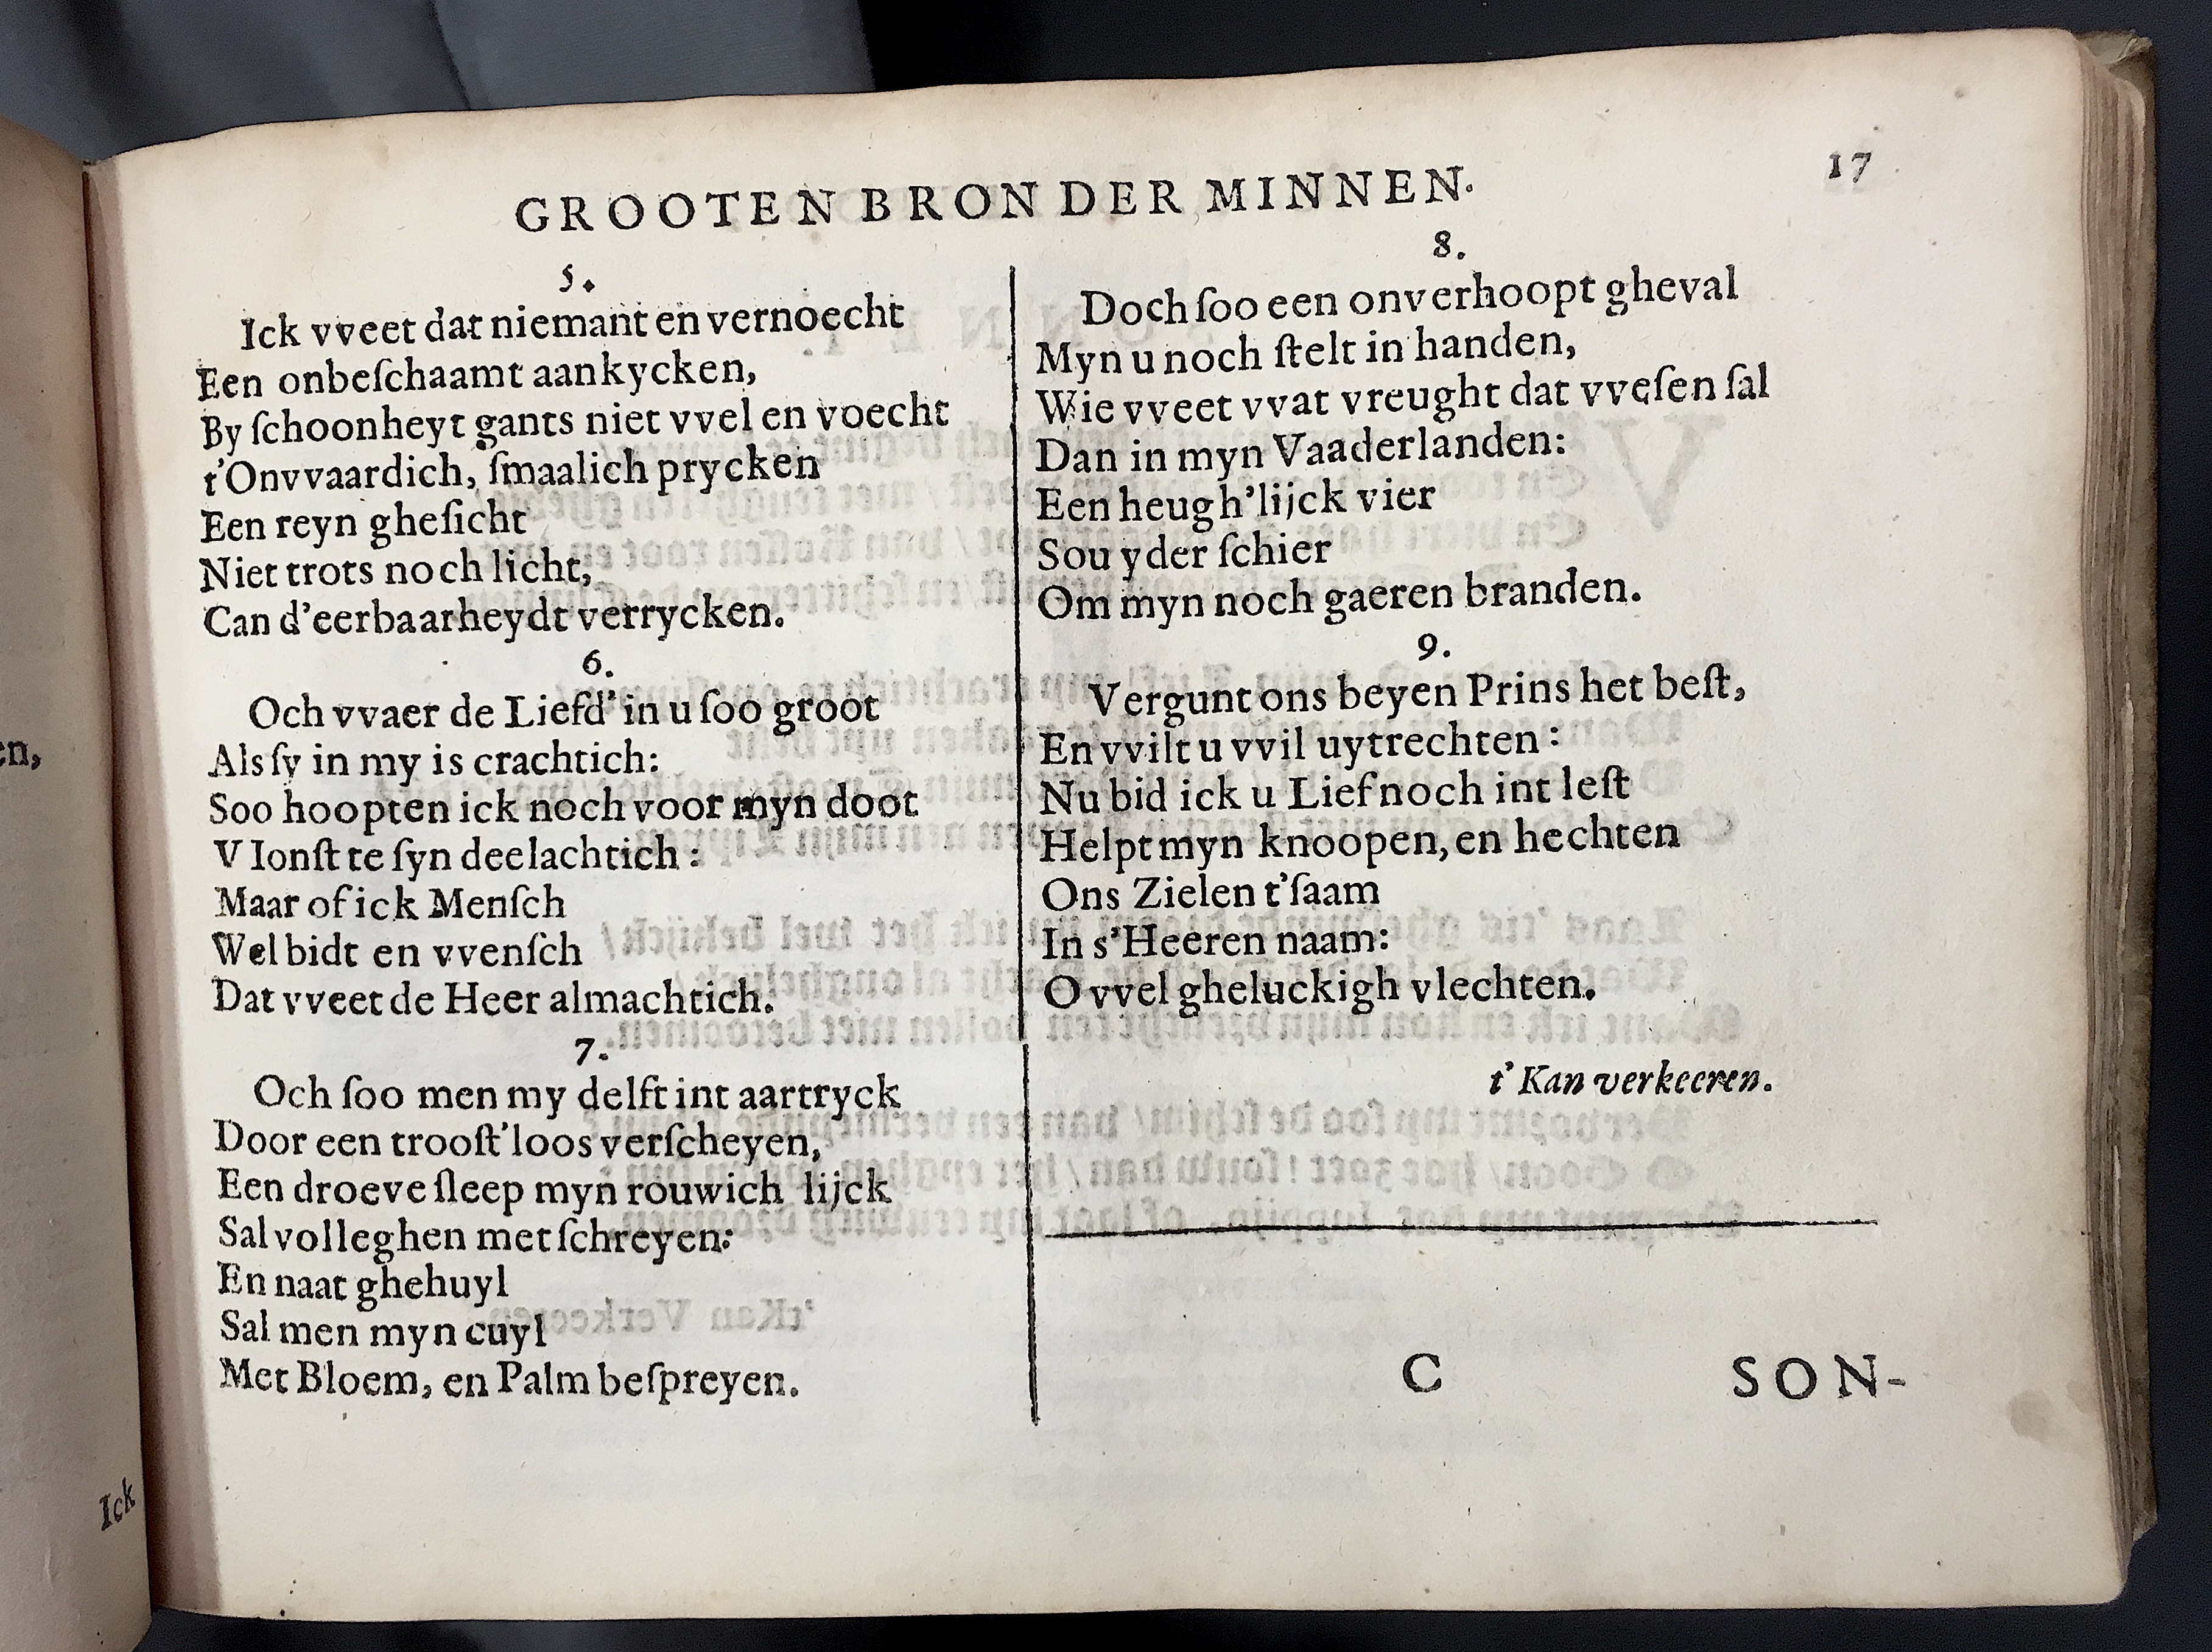 GROOTEN BRON DER MINNEN.
17
5.
Ick vveet dat niemant en vernoecht
Een onbeſchaamt aankycken,
By ſchoonheyt gants niet vvel en voecht
t'Onvvaardich, ſmaalich prycken
Een reyn gheſicht
Niet trots noch licht,
Can d'eerbaarheydt verrycken.
6.
Och vvaer de Liefd' in u ſoo groot
Als ſy in my is crachtich:
Soo hoopten ick noch voor myn doot
V Ionſt te ſyn deelachtich:
Maar of ick Menſch
Wel bidt en vvenſch
Dat vveet de Heer almachtich.
7.
Och ſoo men my delft int aartryck
Door een trooſt'loos verſcheyen,
Een droeve ſleep myn rouwich lijck
Sal volleghen met ſchreyen:
En naat ghehuyl
Sal men myn cuyl
Met Bloem, en Palm beſpreyen.
8.
Doch ſoo een onverhoopt gheval
Myn u noch ſtelt in handen,
Wie vveet vvat vreught dat vveſen ſal
Dan in myn Vaaderlanden:
Een heugh'lijck vier
Sou yder ſchier
Om myn noch gaeren branden.
9.
Vergunt ons beyen Prins het beſt,
En vvilt u vvil uytrechten:
Nu bid ick u Lief noch int leſt
Helpt myn knoopen, en hechten
Ons Zielen t'ſaam
In s'Heeren naam:
O vvel gheluckigh vlechten.
t'Kan verkeeren.
C
SON-
en,
Ick